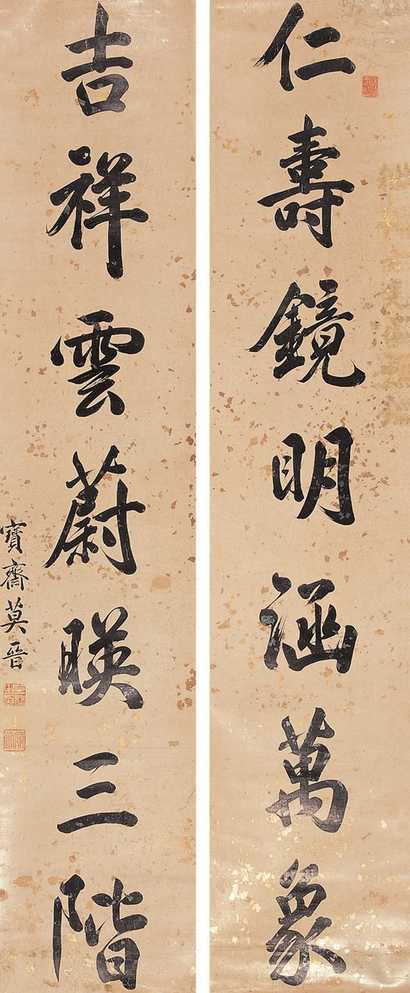 仁壽鏡明涵萬象
吉祥雲蔚暎三階
寶齋莫晉